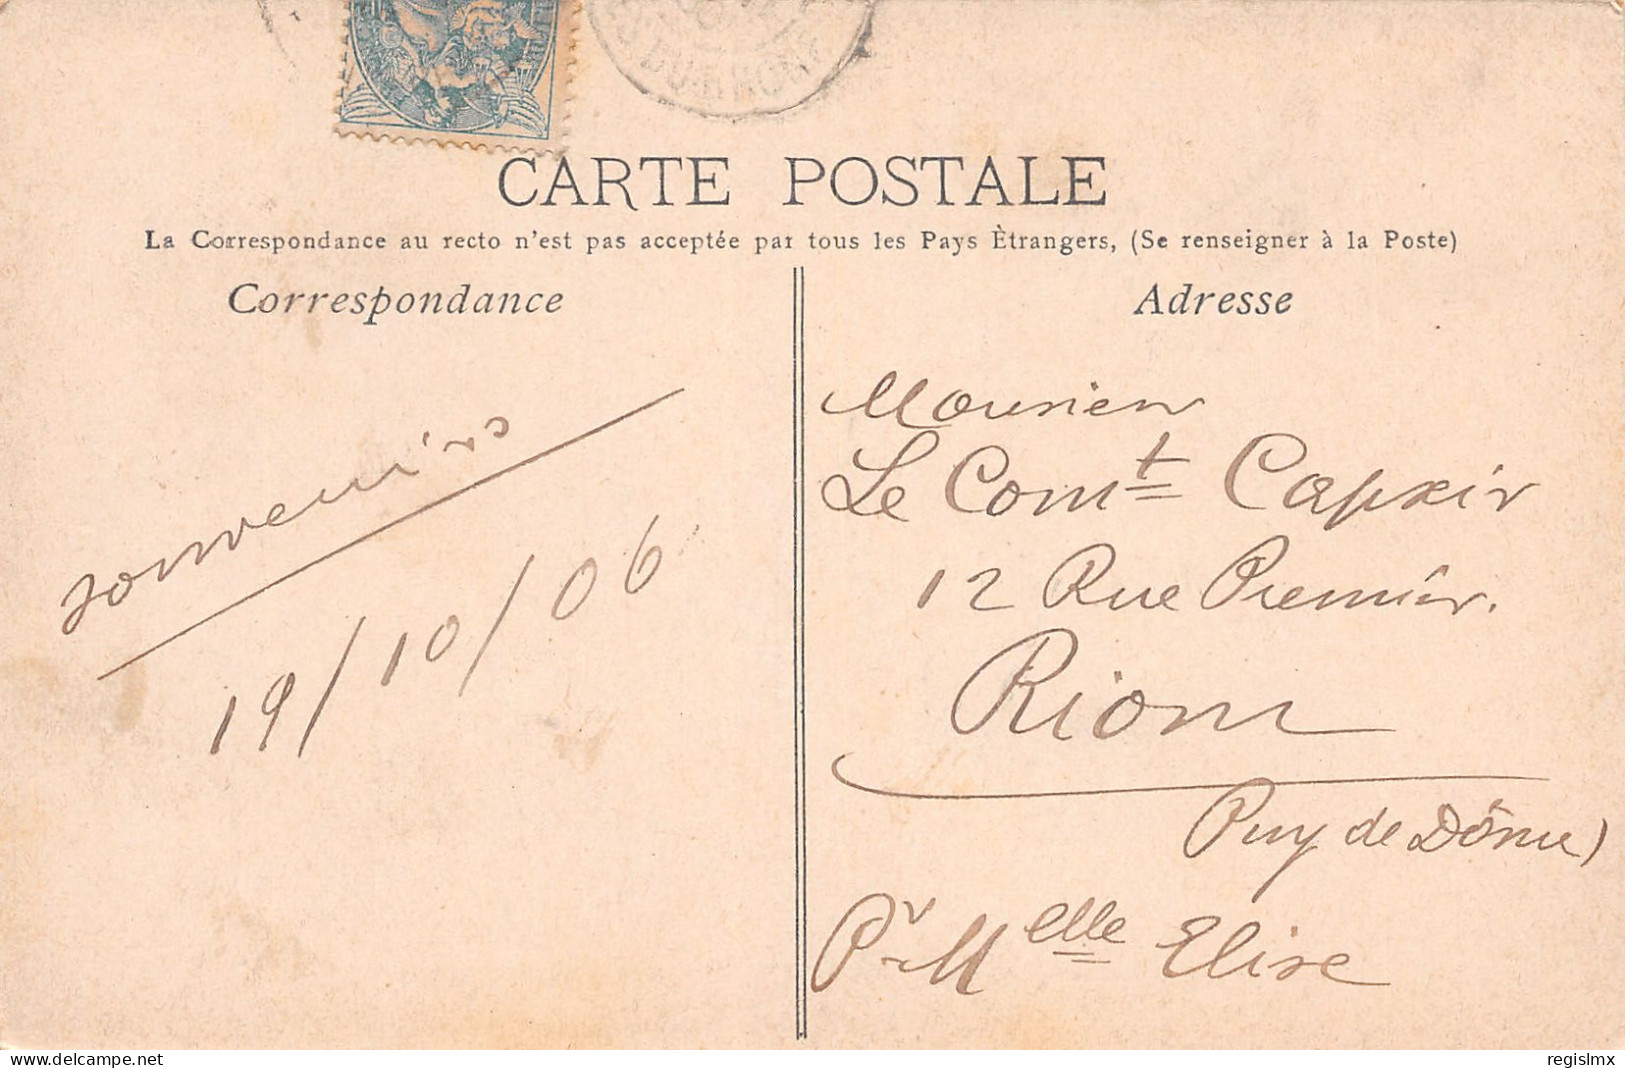 DU-RHONE
CARTE POSTALE
La Correspondance au recto n'est pas acceptée par tous les Pays Ètrangers, (Se renseigner à la Poste)
Correspondance
Adresse
souvenirs
19/10/06
Monsieur
Le Comt Capxir
12 Rue Premièr.
Riom
Puy de Dôme)
Pr Melle Elise
regislmx
delcampe.net